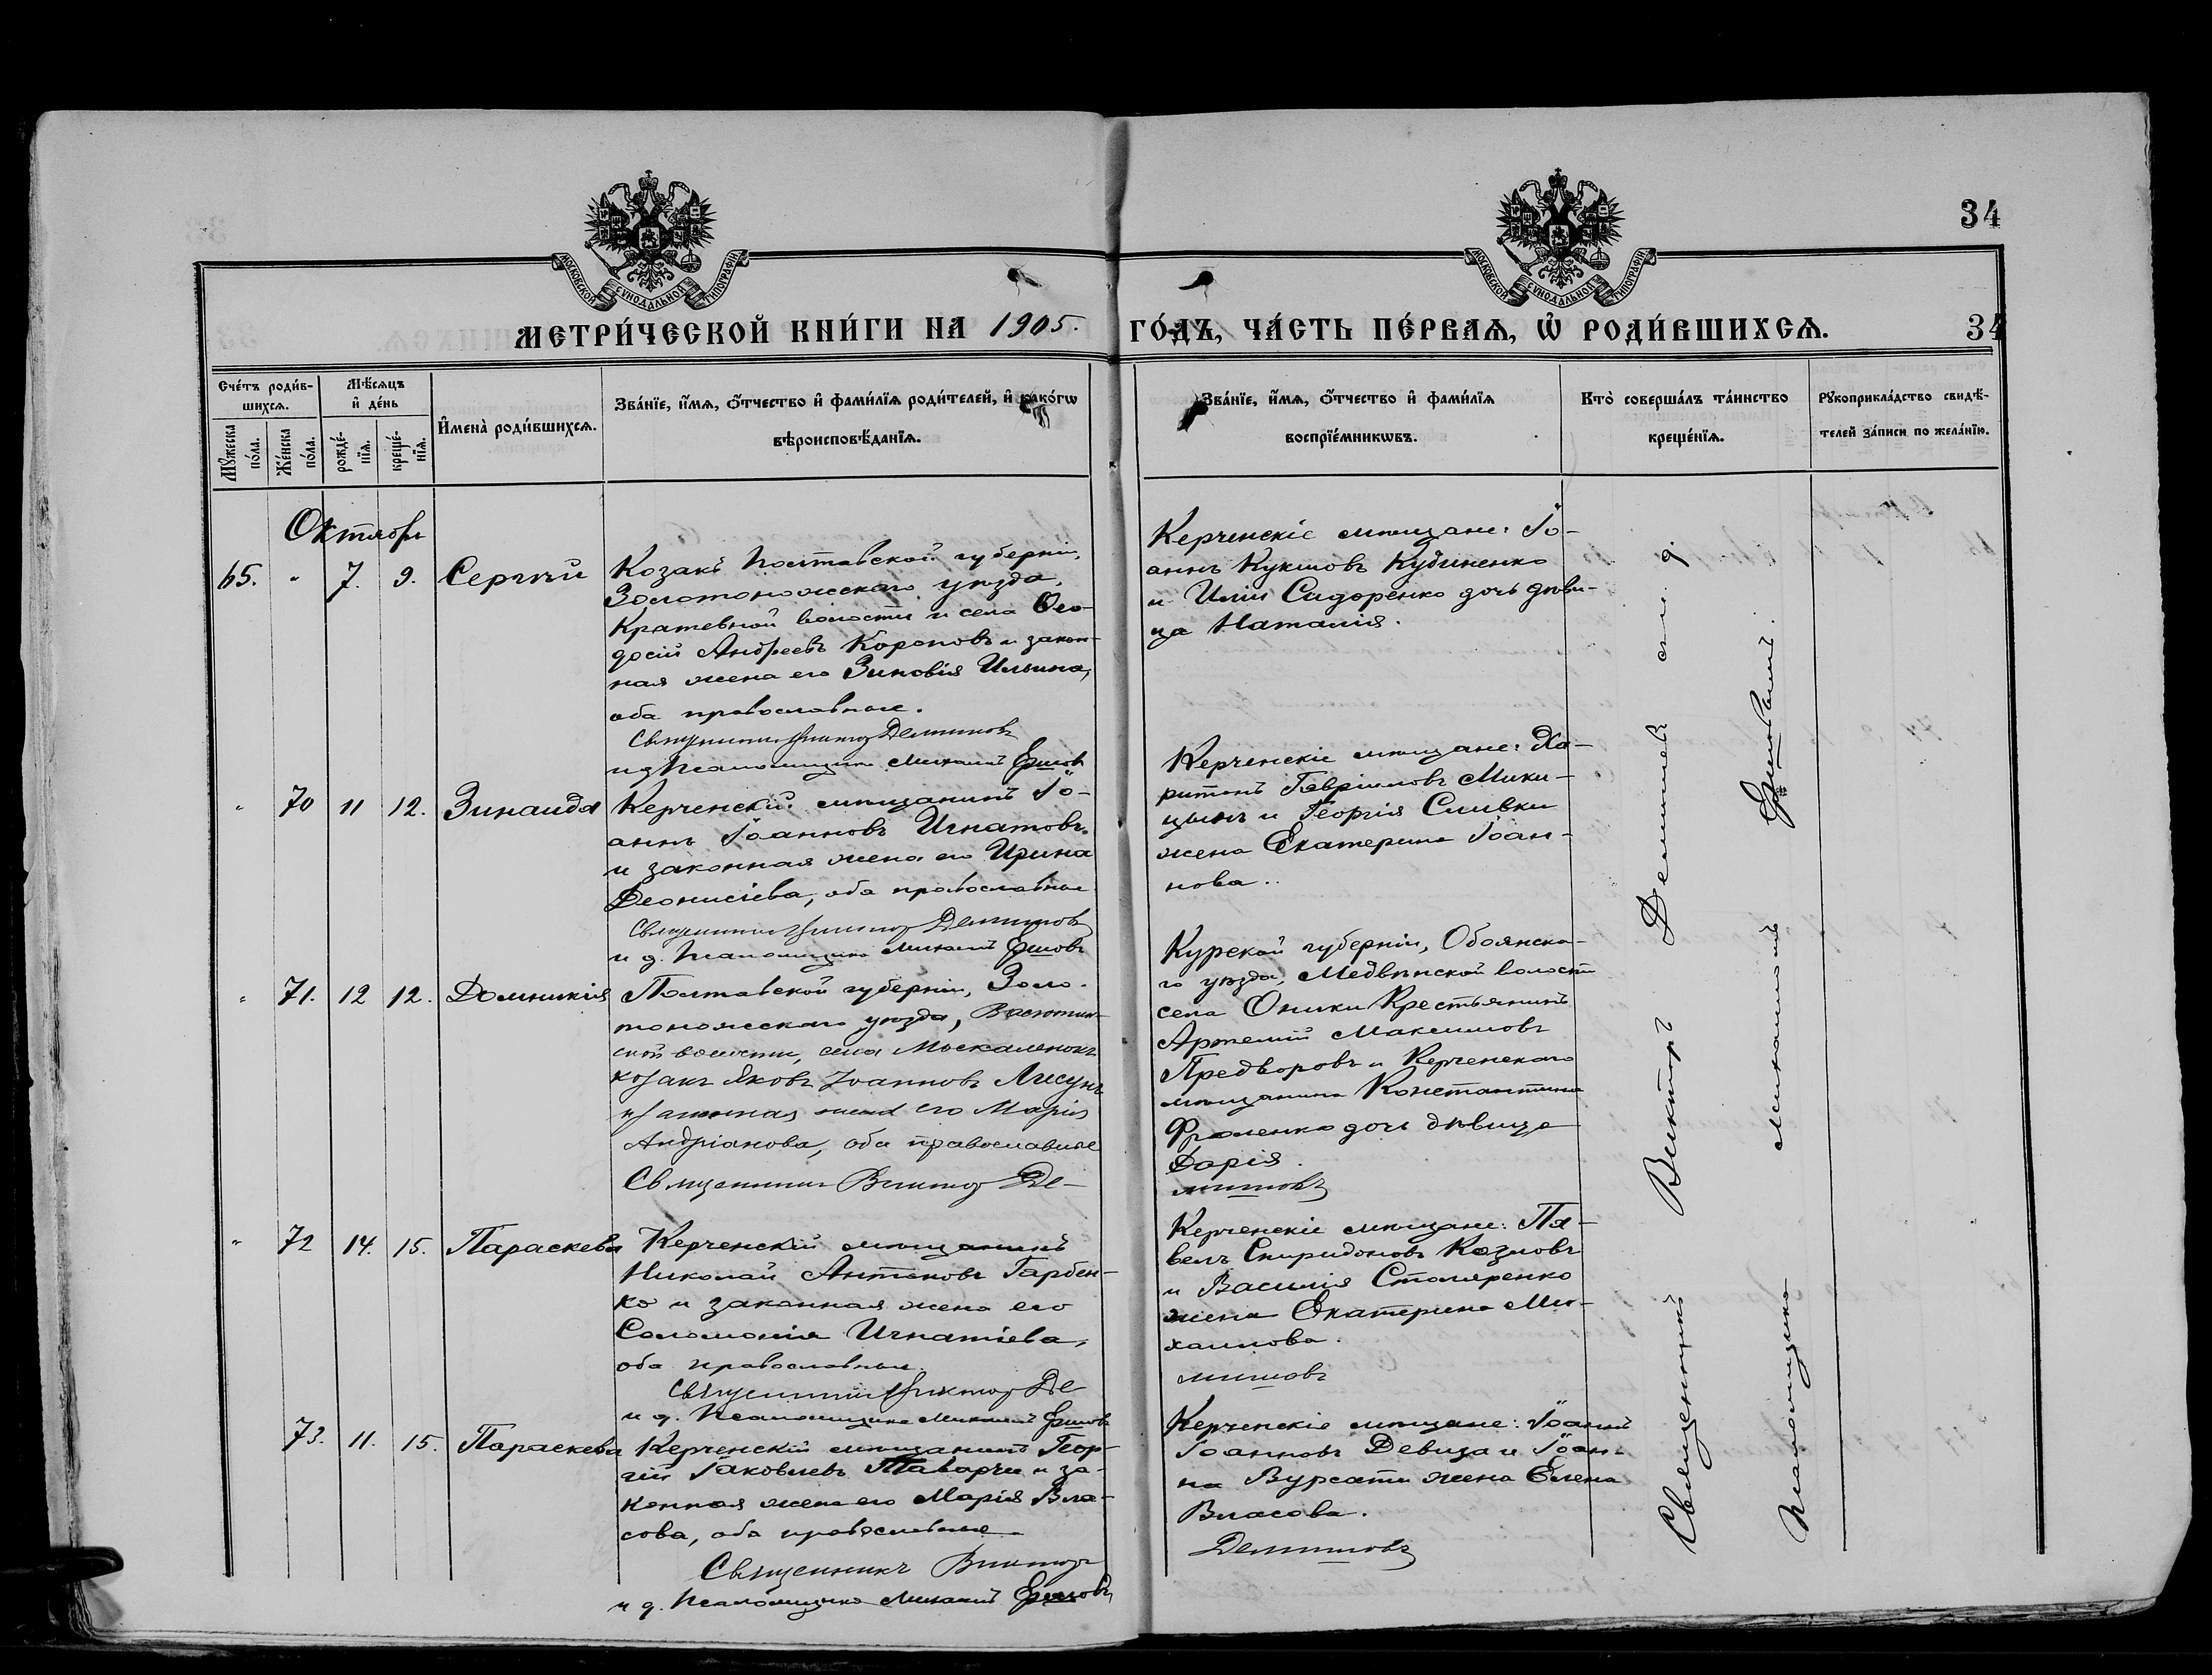 34
МОСКОВСКОЙ СѴНОДАЛЬНОЙ ТИПОГРАФІИ
МОСКОВСКОЙ СѴНОДАЛЬНОЙ ТИПОГРАФІИ
МЕТРИ́ЧЕСКОЙ КНИ́ГИ НА 1905. ГО́ДЪ, ЧА́СТЬ ПЕ́РВАѦ, Ѡ҆ РОДИ́ВШИХСѦ. 34
Сче́тъ роди́в-
шихсѧ.
Мꙋ́жеска по́ла.
Же́нска по́ла.
Мѣ́сѧцъ
и҆ де́нь
рожде́-
нїѧ.
креще́-
нїѧ.
И҆мена̀ роди́вшихсѧ.
Зва́нїе, и҆́мѧ, ѻ҆́тчество и҆ фами́лїѧ роди́телей, и҆ како́гѡ
вѣроисповѣ́данїѧ.
Зва́нїе, и҆́мѧ, ѻ҆́тчество и҆ фами́лїѧ
воспрїе́мникѡвъ.
Кто̀ соверша́лъ та́инство
креще́нїѧ.
Рꙋкоприкла́дство свидѣ́-
телей за́писи по жела́нїю.
Октябрь
65. " 7. 9. Сергій
Козакъ Полтавской губерніи,
Золотоношскаго уѣзда,
Кратевной волости и села Ѳео-
досій Андреевъ Короповъ и закон-
ная жена его Зиновія Ильина,
оба православные.
Священникъ Викторъ Демишовъ
и д Псаломщика Михаилъ Ершовъ
Керченскіе мѣщане: Іо-
аннъ Кукшовъ Кудиненко
и Иліи Сидоренко дочь дѣви-
ца Наталія.
" 70 11 12. Зинаида
Керченскій мѣщанинъ Іо-
аннъ Іоанновъ Игнатовъ
и законная жена его Ирина
Деонисіева, оба православные
Священникъ Викторъ Демишовъ
и д. Псаломщика Михаилъ Ершовъ
Керченскіе мѣщане: Ха-
ритонъ Гавріиловъ Мики-
цынъ и Георгія Сливки
жена Екатерина Іоан-
нова.
" 71. 12 12. Домникія
Полтавской губерніи, Золо-
тоношскаго уѣзда,
волости, села Москаленокъ
козакъ Яковъ Іоанновъ Лисунъ
и законная жена его Марія
Андріанова, оба православные
Священникъ Викторъ Де-
мишовъ
Курской губерніи, Обоянска-
го уѣзда, Медвѣнской волости
села Оники Крестьянинъ
Артемій Максимовъ
Предворовъ и Керченскаго
мѣщанина Константина
Фроленко дочь дѣвица
Дарія.
" 72 14. 15. Параскева
Керченскій мѣщанинъ
Николай Антоновъ Гарбен-
ко и законная жена его
Соломонія Игнатіева,
оба православные.
Священникъ Викторъ Де-
мишовъ
и д. Псаломщика Михаилъ Ершовъ
Керченскіе мѣщане: Па-
велъ Спиридоновъ Козловъ
и Василія Столяренко
жена Екатерина Ми-
хаилова.
73. 11. 15. Параскева
Керченскій мѣщанинъ Геор-
гій Іаковлевъ Таварчи и за-
конная жена его Марія Вла-
сова, оба православные
Священникъ Викторъ
Демишовъ
и д. Псаломщика Михаилъ Ершовъ
Керченскіе мѣщане: Іоаннъ
Іоанновъ Девица и Іоан-
на Вурсати жена Елена
Власова.
Священникъ Викторъ Демишевъ
Псаломщика Михаилъ